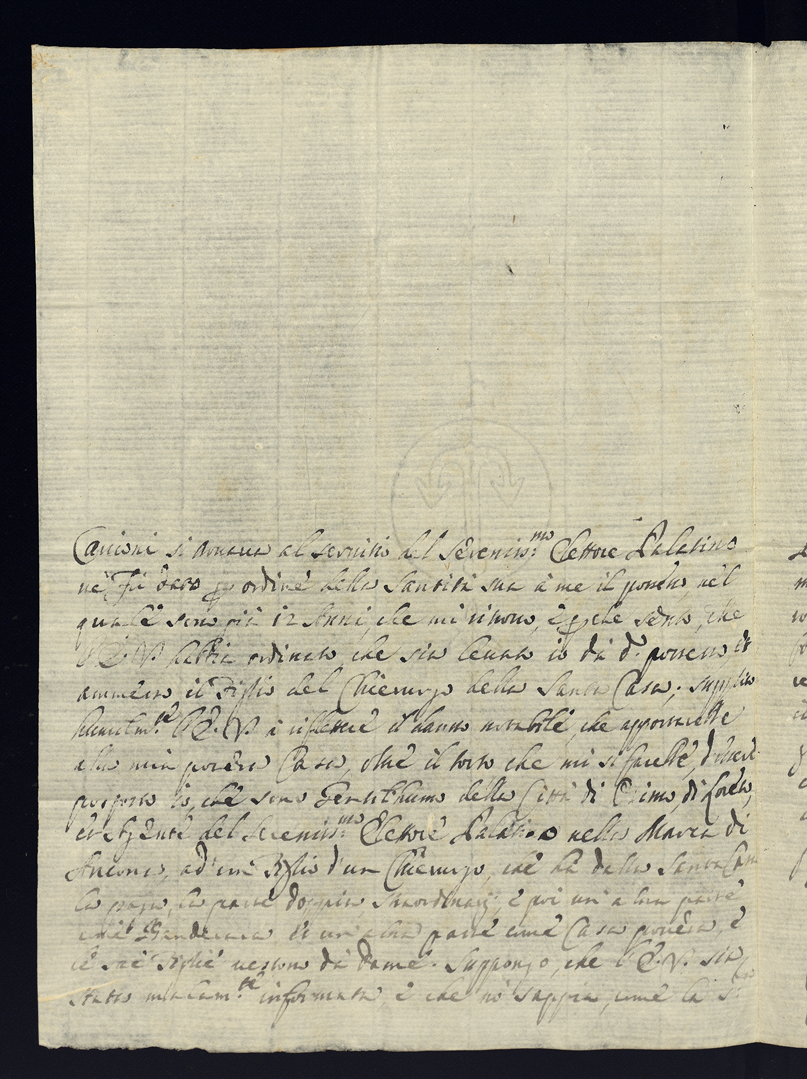 si trovava al servitio del Serenissmo Elettore Palatino
ne fù dato p ordine della Santità sua à me il posto, nel
quale sono già 12 Anni, che mi ritrovo, e p che sento, che
l'E. V. habbia ordinato che sia levato io dà do possesso et
ammesso il Figlio del Chierurgo della Santa Casa; supplico
humilmte l'E. V. à riflettere il danno notabile, che apportarebbe
alla mia povera Casa, oltre il torto che mi si farebbe, d'esser
posposto io, che sono Gentilhuomo della Città di Osimo, di Loreto,
et Agente del Serenissmo Elettore Palatino nella Marca di
Ancona, ad un Figlio d'un Chierurgo, che hà dalla Santa Casa
la paga, la parte doppia straordinaria, e poi un' altra parte
come et un'altra parte come Casa povera, e
le sue Figlie vestono dà Dame. Suppongo, che l'E. V. sia
stata malamte informata, e che nò sappia, come la